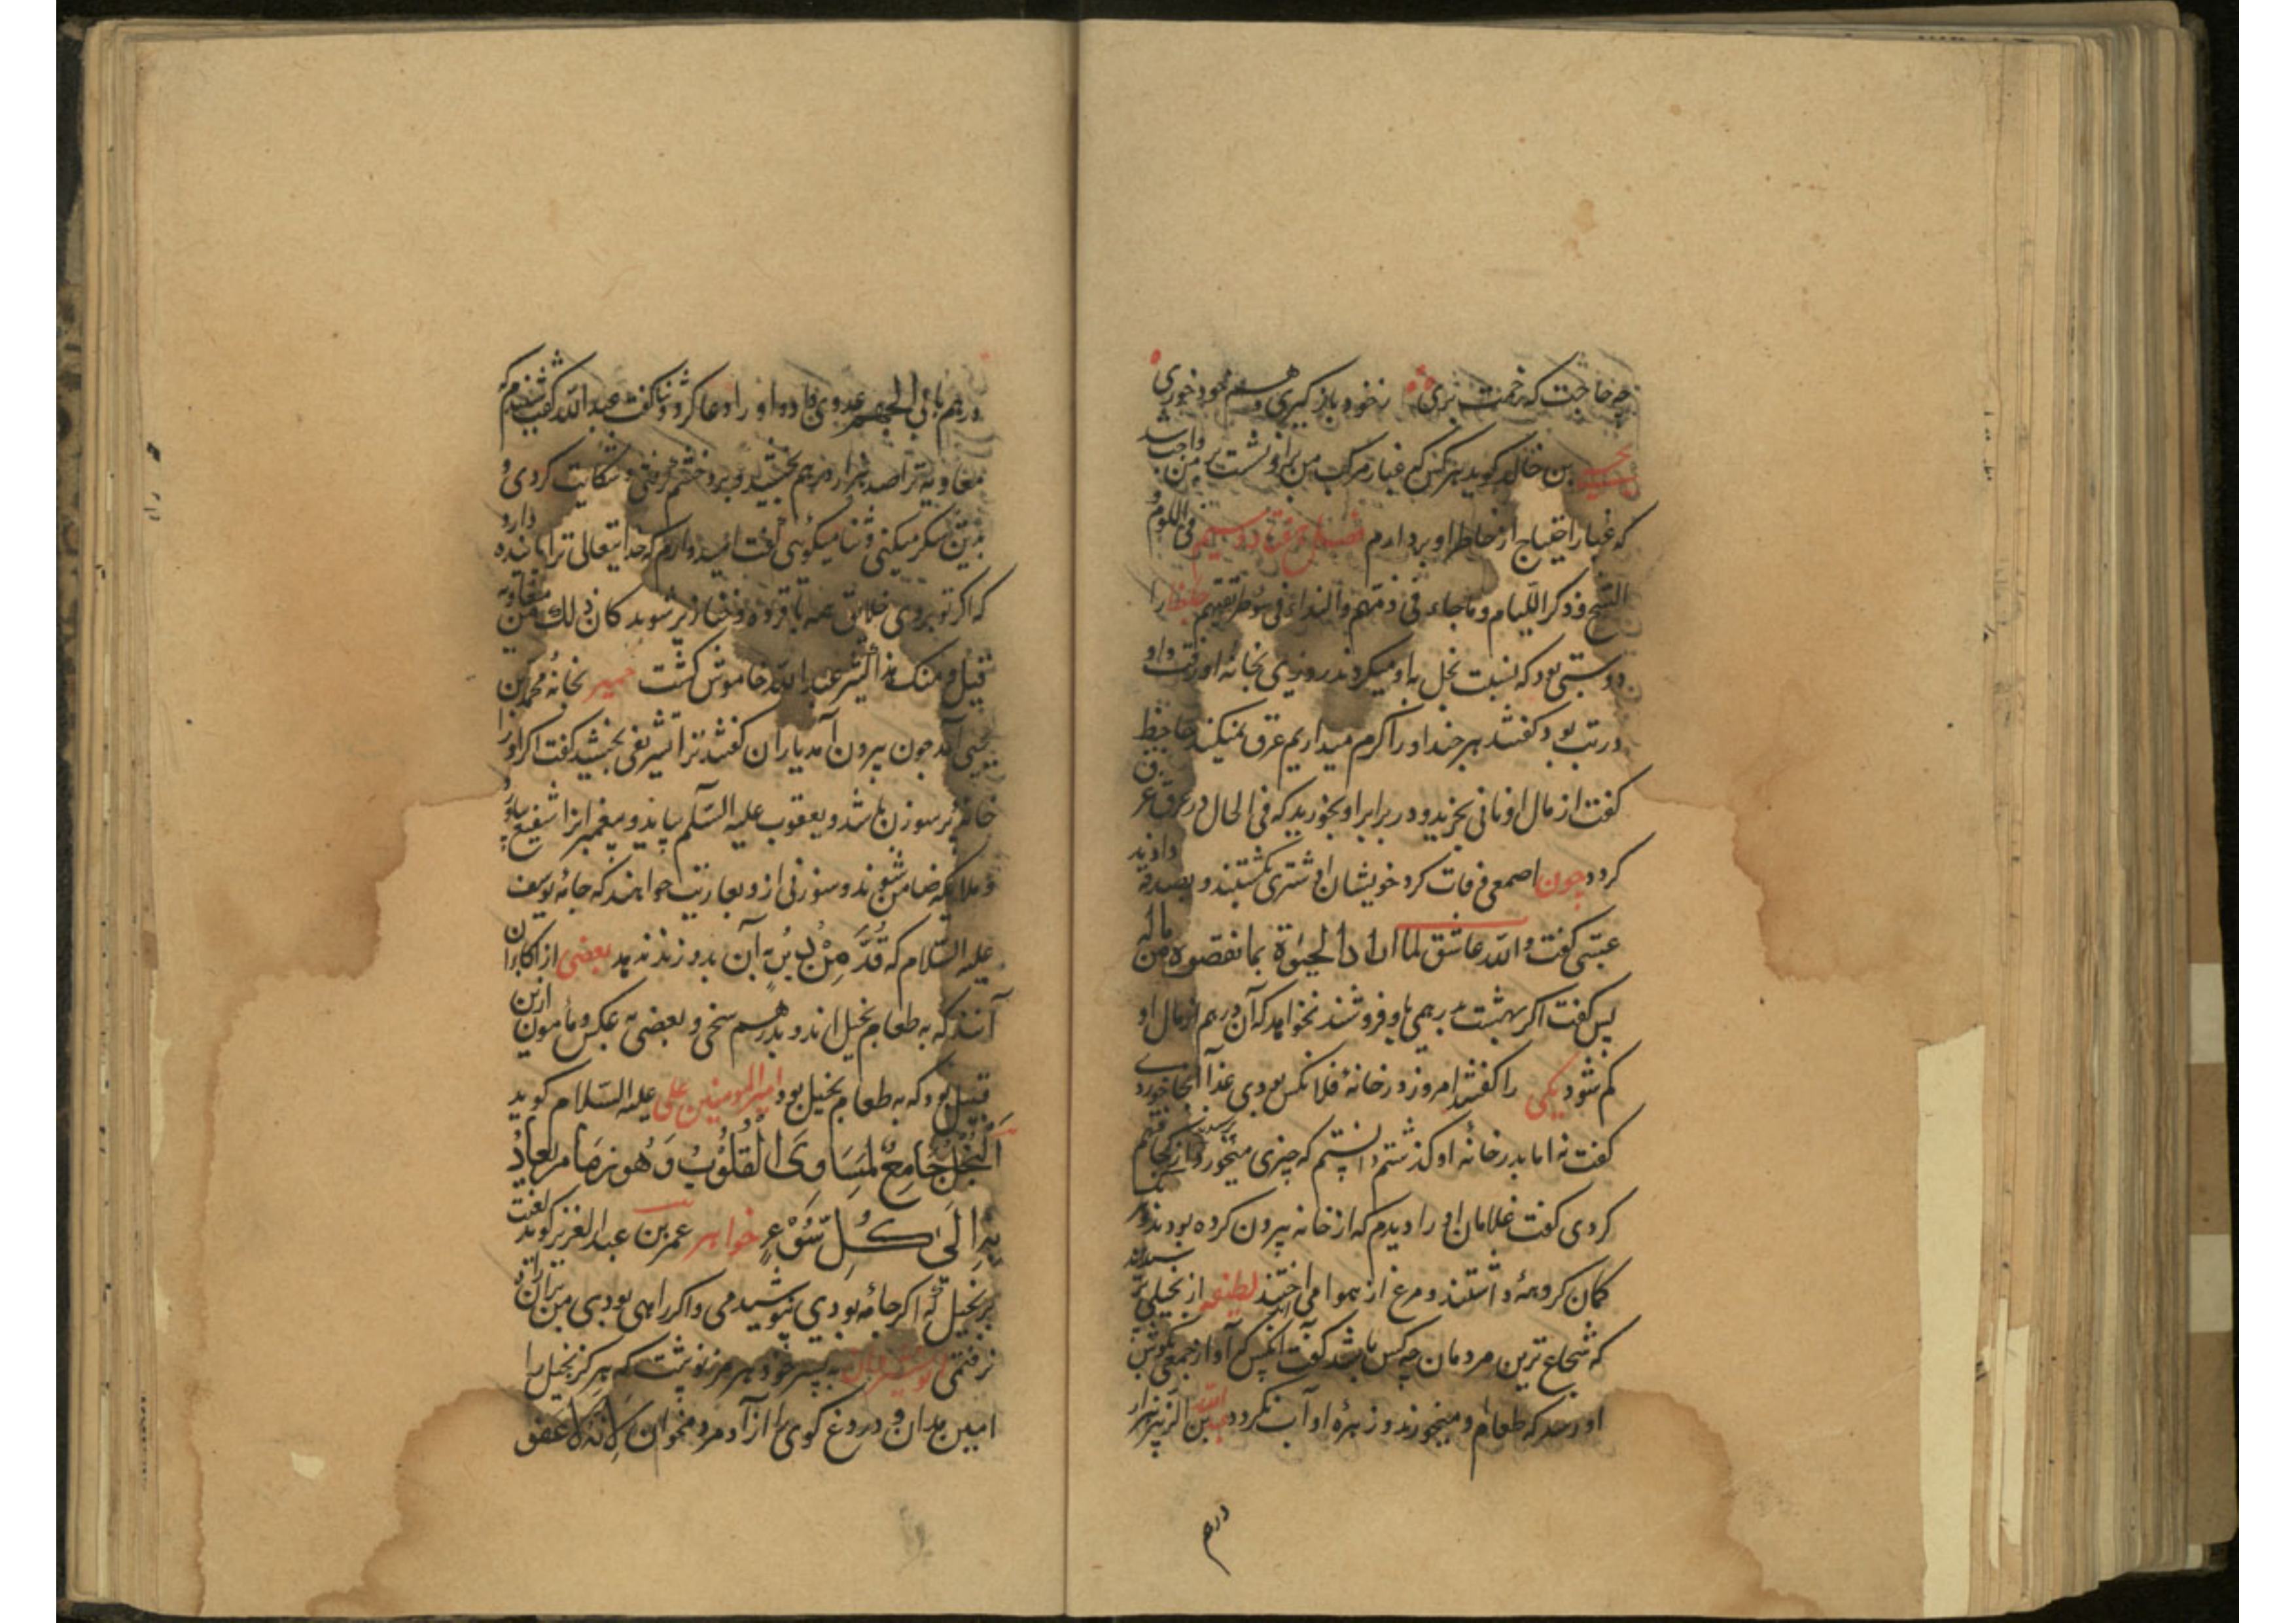 چه حاجت که زحمت بری ز خود باز گیری و هم خود خوری
بن خالد کوید هر کس که غبار مرکب من برو نشست بر من واجب
که غبار احتیاج از خاطر او بردارم فی اللوم و
الشح و ذکر اللیام و ما جاء فی ذمهم جاحظ را
دوستی بود که نسبت بخل باو میکردند روزی بخانه او رفت و او
در تب بود کفتند هر چند او را کرم میداریم عرق نمیکند جاحظ
کفت از مال او نانی بخرید و در برابر او بخورید که فی الحال در عرق غرق
کردد چون اصمعی وفات کرد خویشان او شتری بکشتند و بصدقه دادند
عتبی کفت والله عاشق لما الحیوة بما نقصوه من ماله
پس کفت اکر بهشت بدرهمی باو فروشند نخواهد که آن درهم از مال او
کم شود یکی را کفتند امروز در خانهٔ فلانکس بودی غذا آنجا خوردی
کفت نه اما بدر خانهٔ او کذشتم دانستم که چیزی میخورد از کجا فهم
کردی کفت غلامان او را دیدم که از خانه بیرون کرده بودند و
کمان کروهه داشتند و مرغ از هوا می انداختند لطیفه از بخیلی پرسیدند
که شجاع ترین مردمان چه کس باشد کفت آنکس که آواز جمعی بکوش
او رسد که طعام او میخورند و زهرهٔ او آب نکردد عبدالله بن الزبیر هزار
درهم
درهم بابی الجهم عدوی داد او را دعا کرد و ثنا کفت عبدالله کفت شنیدم که
معاویه ترا صد هزار درهم بخشید و برو خشم کرفتی و شکایت کردی و
بدین شکر میکنی و ثنا میکوئی کفت امیدوارم که خدایتعالی ترا پاینده دارد
که اکر تو بروی خلایق همه با قرده و خنازیر شوند کان ذلک من معاویه
قلیل و منک هذا کثیر عبدالله خاموش کشت بخانهٔ محمد بن
یحیی آمد چون بیرون آمد یاران کفتند ترا تشریفی بخشید کفت اکر او را
خانهٔ پر سوزن باشد و یعقوب علیه السلام بیاید و پیغمبرانرا شفیع بیاورد
و ملایکه ضامن شوند و سوزنی ازو بعاریت خواهند که جامهٔ یوسف
علیه السلام که قُدَّ مِنْ دُبُرٍ به آن بدوزند ندهد بعضی از اکابران
آنند که به طعام بخیل اند و بدرهم سخی و بعضی به عکس و مأمون ازین
قبیل بود که به طعام بخیل بود امیرالمومنین علی علیه السلام کوید
اَلْبُخْلُ جَامِعٌ لِمَسَاوِی الْقُلُوْبِ وَ هُو زِمَام یُقادُ
بِهِ اِلَی کُلِّ سُوْءٍ خواهر عمر بن عبدالعزیز کوید لعنت
بر بخیل که اکر جامه بودی نپوشیدمی و اکر راهی بودی من بران راه
نرفتمی نوشیروان به پسر خود هرمز نوشت که هرکز بخیل را
امین مدان و دروغ کوی را آزاد مرد مخوان لانه لا عفة